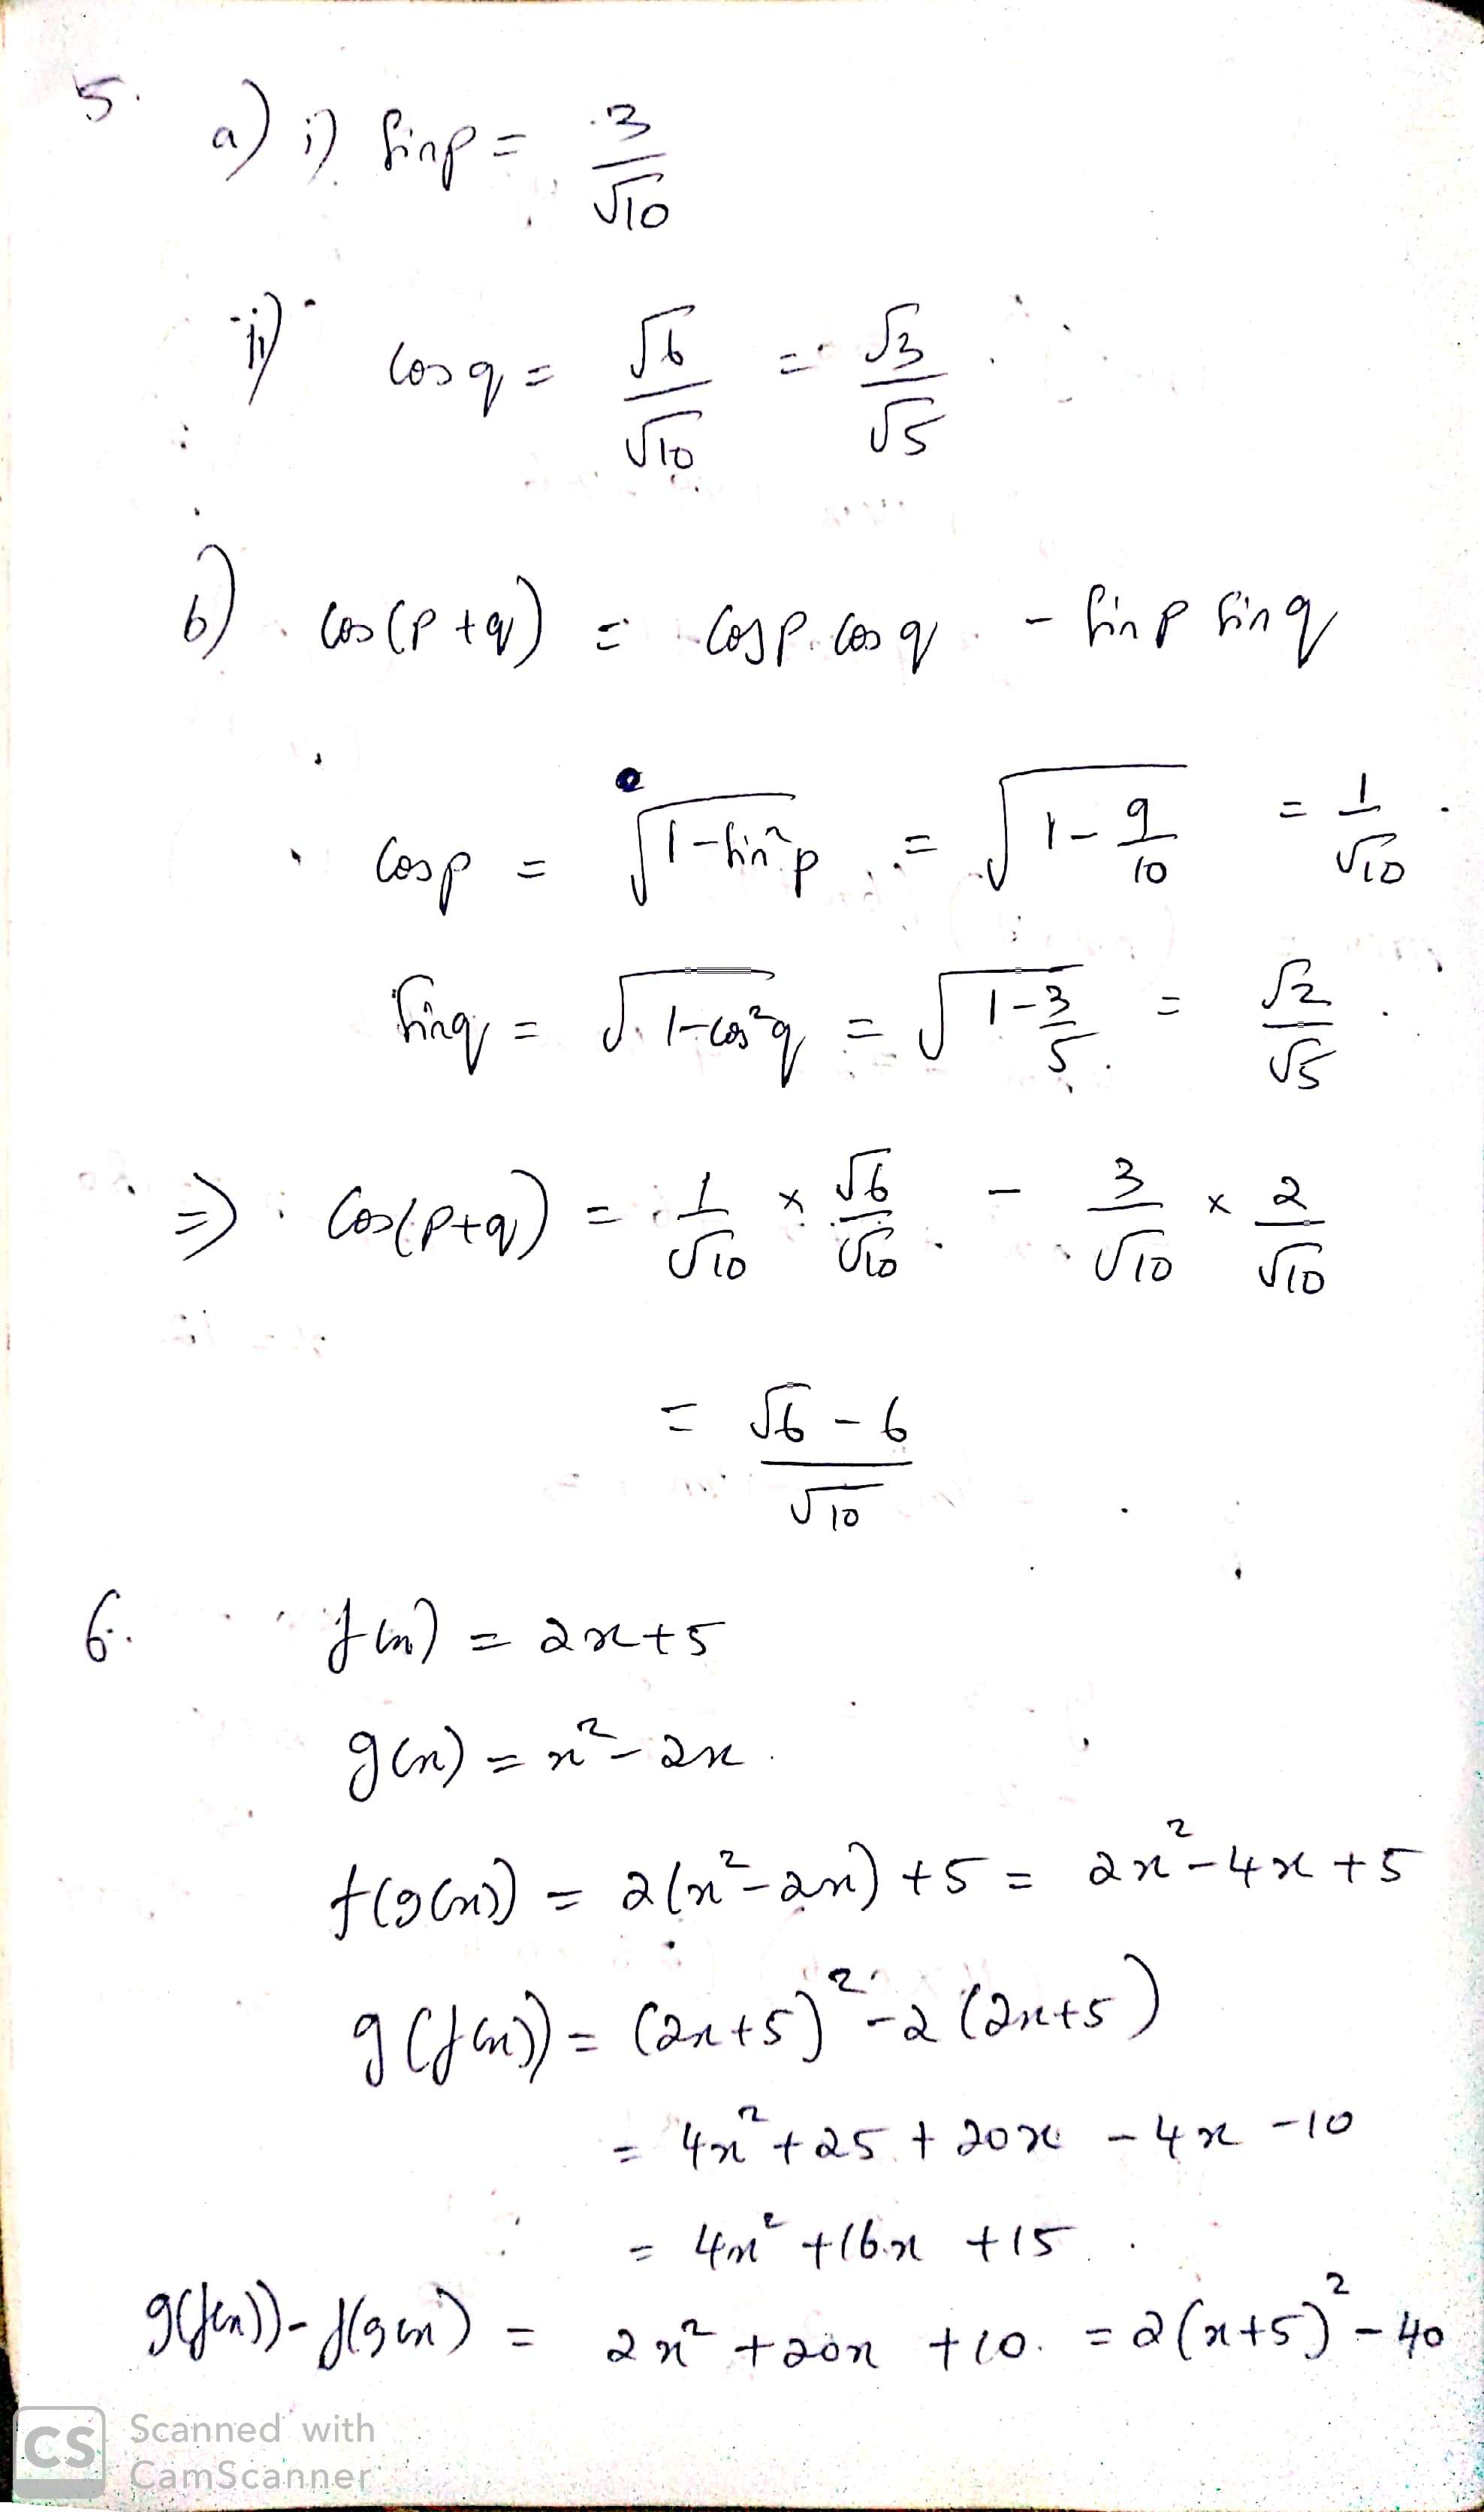 5. a) i) Sin p = 3/√10
ii) Cos q = √6/√10 = √3/√5
b) Cos(p+q) = Cos p. Cos q - Sin p Sin q
Cos p = √(1-Sin²p) = √(1-9/10) = 1/√10
Sin q = √(1-Cos²q) = √(1-3/5) = √2/√5
⇒ Cos(p+q) = 1/√10 × √6/√10 - 3/√10 × 2/√10
= (√6-6)/√10
6. f(x) = 2x+5
g(x) = x²-2x
f(g(x)) = 2(x²-2x)+5 = 2x²-4x+5
g(f(x)) = (2x+5)²-2(2x+5)
= 4x²+25+20x-4x-10
= 4x²+16x+15
g(f(x))-f(g(x)) = 2x²+20x+10. = 2(x+5)²-40
CS Scanned with
CamScanner